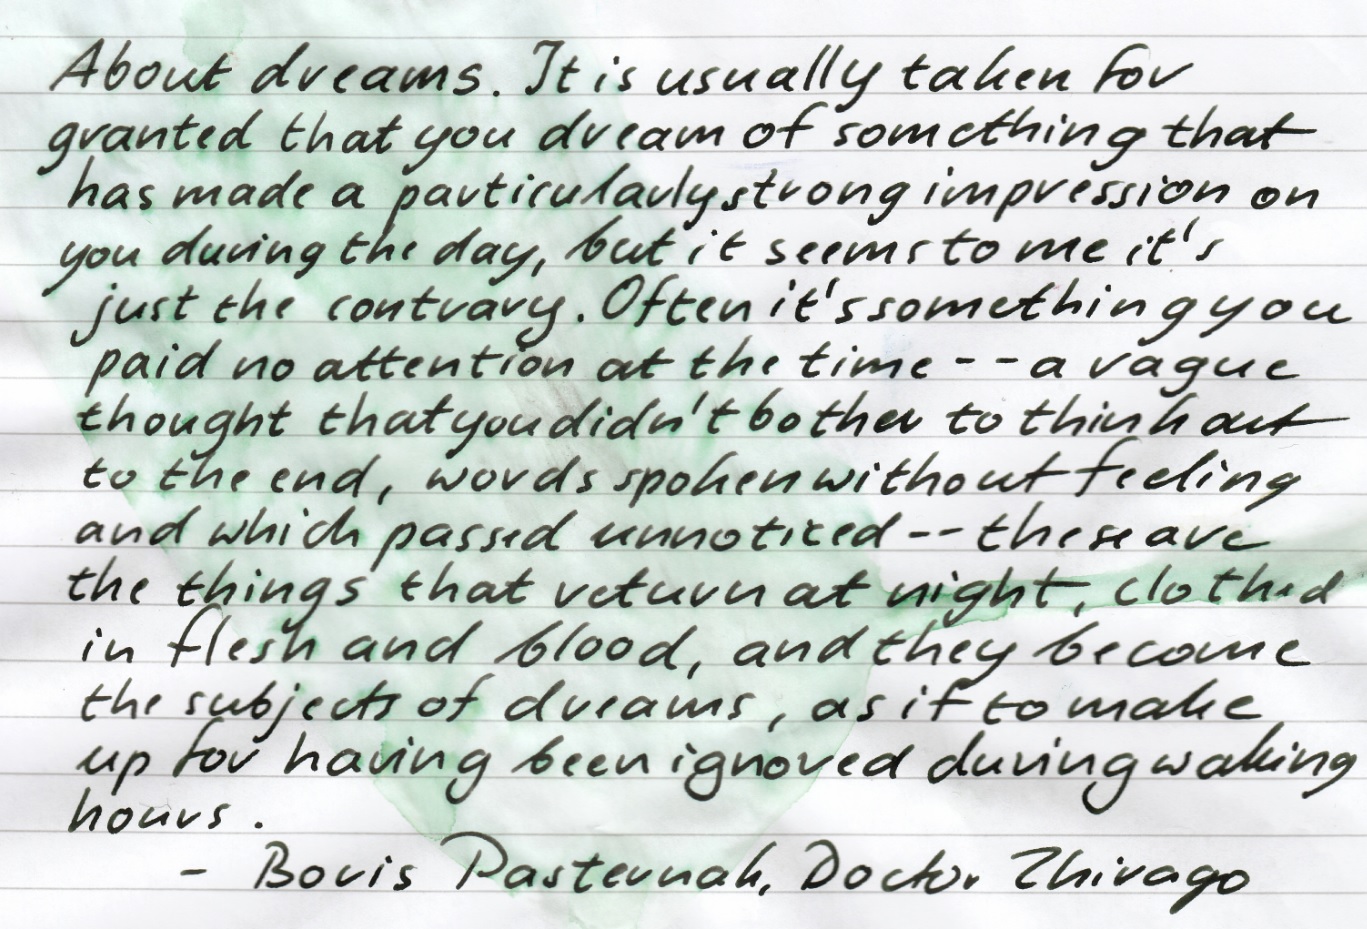 About dreams. It is usually taken for
granted that you dream of something that
has made a particularly strong impression on
you during the day, but it seems to me it's
just the contrary. Often it's something you
paid no attention at the time -- a vague
thought that you didn't bother to think out
to the end, words spoken without feeling
and which passed unnoticed -- these are
the things that return at night, clothed
in flesh and blood, and they become
the subjects of dreams, as if to make
up for having been ignored during waking
hours.
- Boris Pasternak, Doctor Zhivago